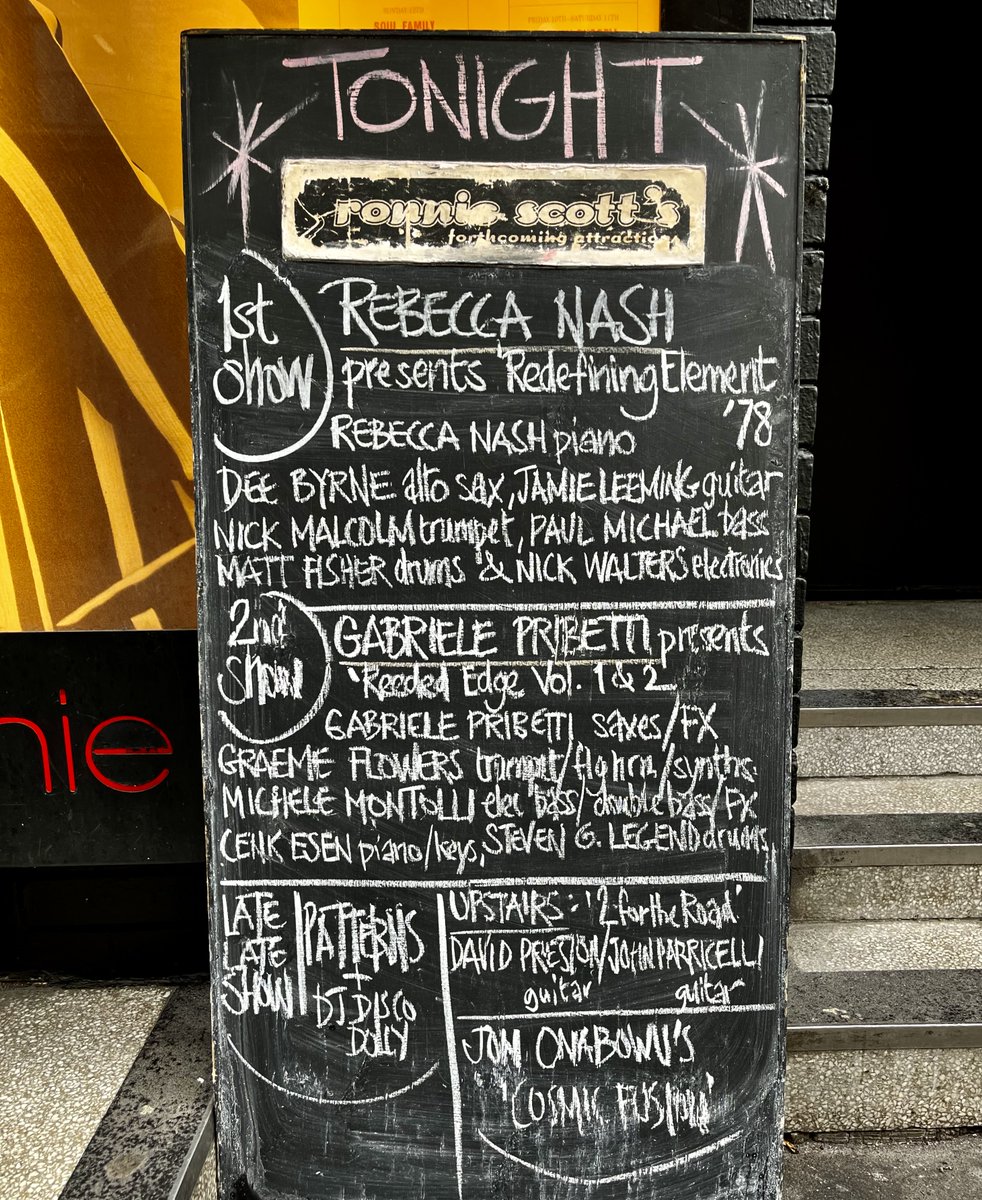 SOUL FAMILY
TONIGHT
ronnie scott's
forthcoming attractions
1st
show
REBECCA NASH
presents 'Redefining Element
'78
REBECCA NASH piano
DEE BYRNE alto sax, JAMIE LEEMING guitar
NICK MALCOLM trumpet, PAUL MICHAEL bass
MATT FISHER drums & NICK WALTERS electronics
2nd
show
GABRIELE PRIBETTI presents
'Reeded Edge Vol. 1 & 2
GABRIELE PRIBETTI saxes/FX
GRAEME FLOWERS trumpet/flghrn/synths.
MICHELE MONTOLLI elec bass/double bass/FX
CENK ESEN piano/keys, STEVEN G. LEGEND drums,
LATE
LATE
SHOW
PATTERNS
+
DJ DISCO
DOLLY
UPSTAIRS: '2 for the Road'
DAVID PRESTON/JOHN PARRICELLI
guitar guitar
JOM ONABOWU'S
'COSMIC FUSION'
nie